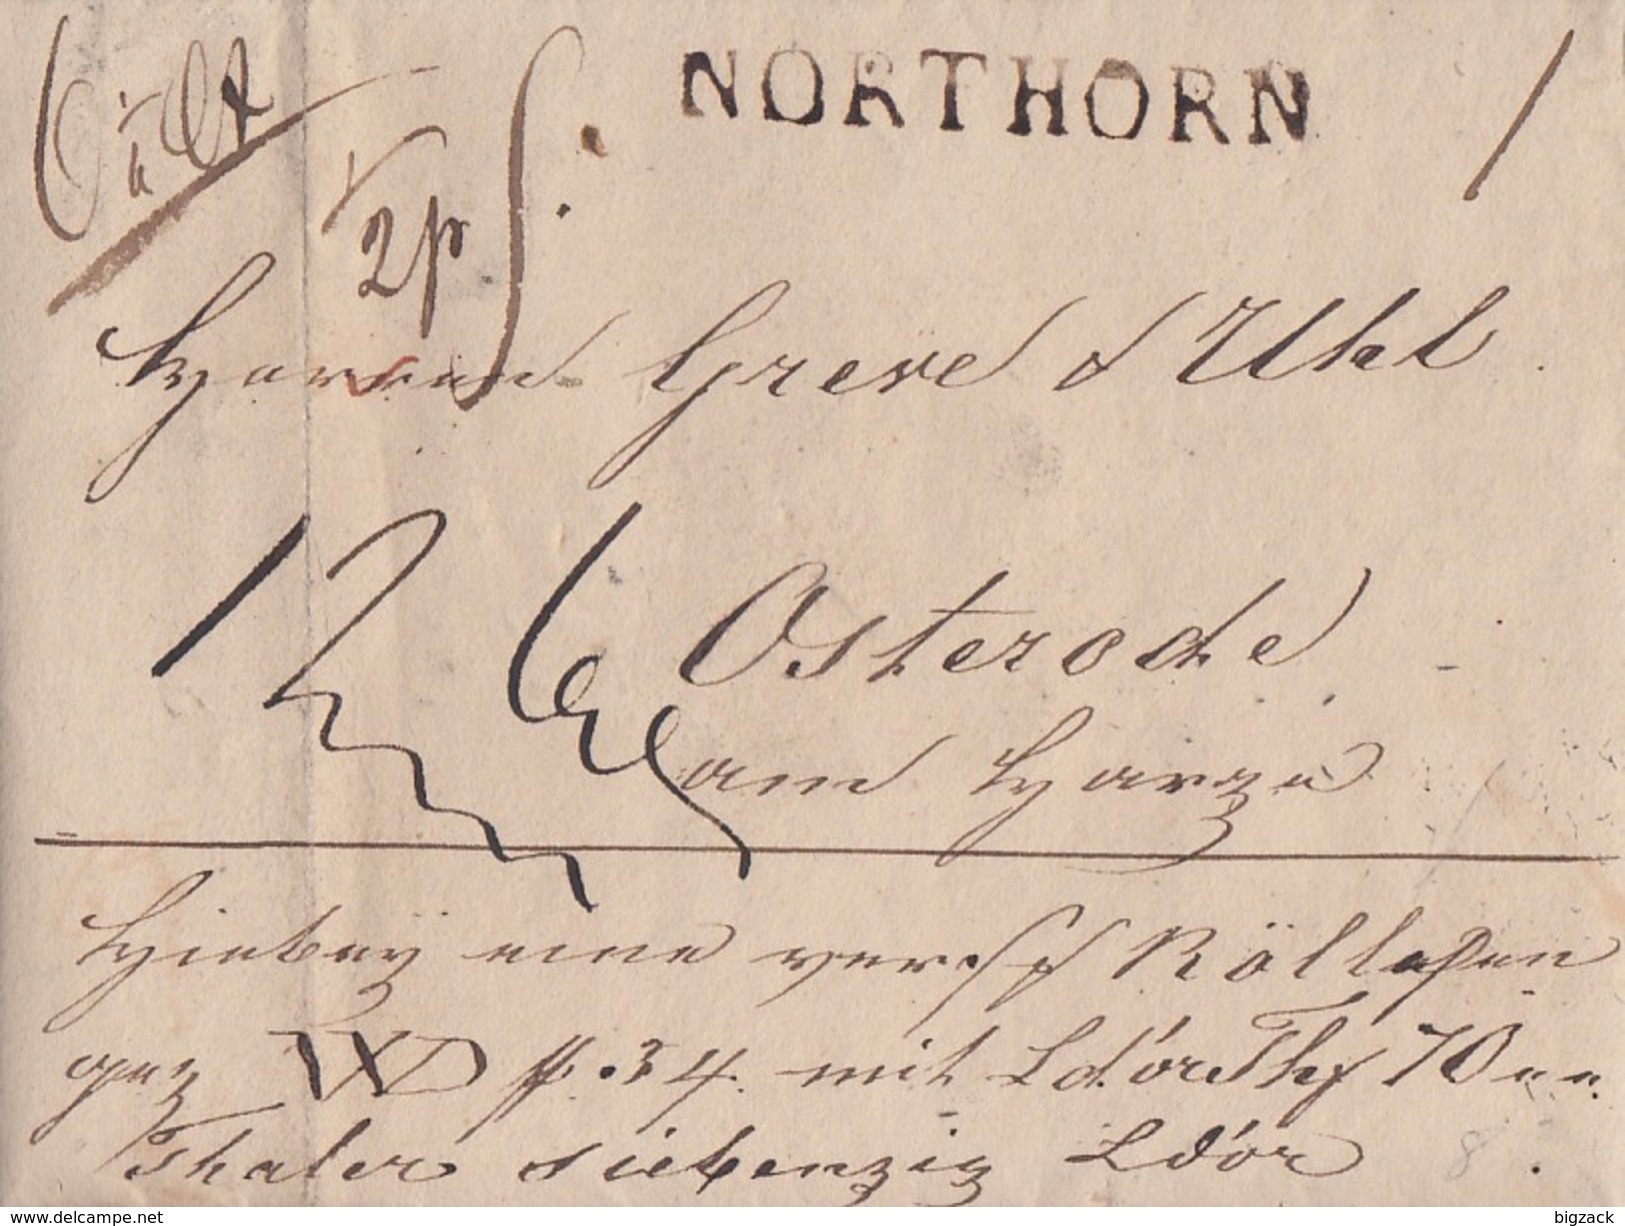 NORTHORN
2p
Herren Greve & Uhl
126 Osterode
am Harze
Hiebey eine vers. Röllchen
gez WD #. 34. mit Ld'or Thlr 70 „ „.
Thaler siebenzig Ld'or
www.delcampe.net
bigzack